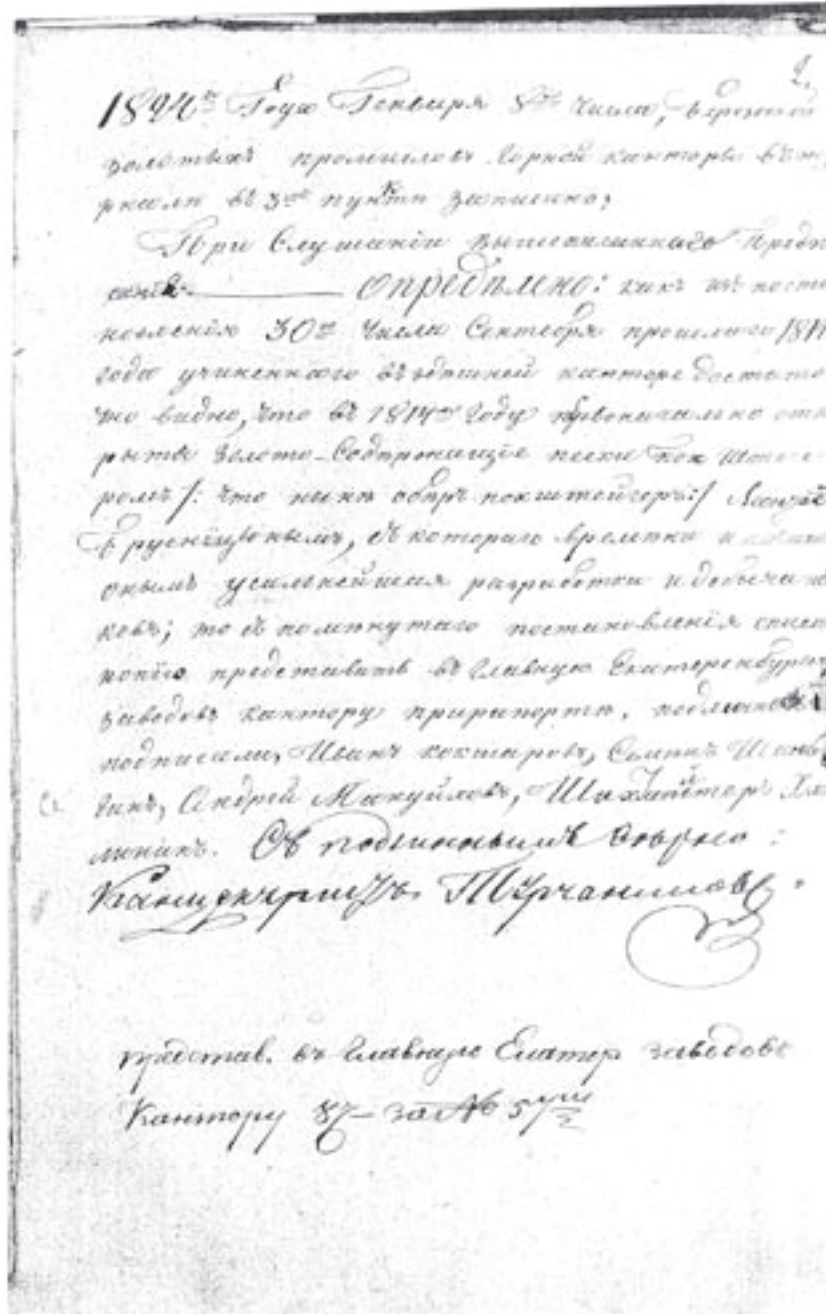 2.
1824го Году Генваря 8го числа, Березовской
золотыхъ промысловъ горной канторы въ жу
рналѣ въ 3мъ пунктѣ записано,
При слушаніи вышеписаннаго предпи
санія ——— опредѣлено: какъ изъ поста
новленія 30го числа Сентября прошлаго
года учиненнаго въ здѣшней канторе достато
чно видно, что въ 1814мъ году первоначально отк
рыты золото-содержащіе пески
ромъ /: что нынѣ оберъ похштейгеръ:/
Брусницынымъ, съ котораго времени и
онымъ усиленнейшая разработка и добыча пе
сковъ; то съ помянутаго постановленія списавъ
копію представить въ главную Екатеренбургск
заводовъ кантору при рапортѣ, подлинное
подписали, Иванъ Кокшаровъ, Семенъ Шань
гинъ, Андрей Мануйловъ, Шихтмейстеръ
Съ подлиннымъ вѣрно:
Канцеляристъ Турчаниновъ.
представ. въ главную Екатер заводовъ
Кантору 8г — за № 5мъ